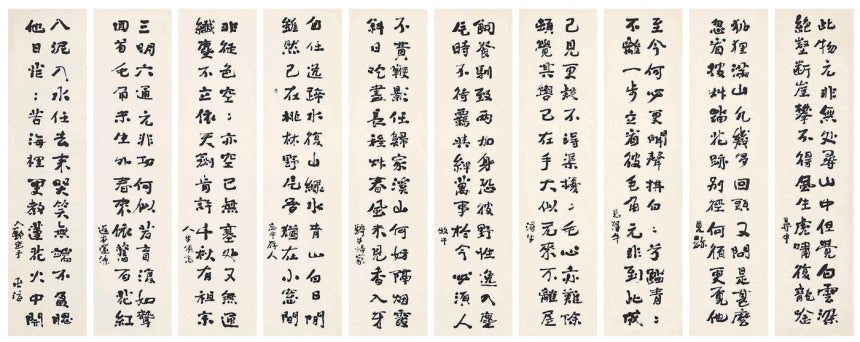 此物元非無処尋山中但覺白雲深
絕壑斷崖攀不得風生虎嘯復龍唫
尋牛
狐狸滿山凡幾多回頭又問是甚麼
忽看披艸踏花跡別徑何須更覓他
見跡
至今何必更聞聲拌白:兮踏青:
不離一步立看彼毛角元非到此成
見牛
已見更救不得渠擾:毛心亦難除
頓覺其轡已在手大似元來不離居
得牛
飼養馴致兩加身恐彼野性逸入塵
片時不待羈鞿絆萬事於今必須人
牧牛
不費鞭影任歸家溪山何妨隔烟霞
斜日吃盡長程艸春風未見香入牙
騎牛歸家
自任逸蹄水復山綠水青山白日閒
雖然已在桃林野片雲猶在小窓間
忘牛存人
非徒色空:亦空已無塞處又無通
纖塵不立依天劍肯許千秋有祖宗
人牛俱忘
三明六通元非功何似若盲復如聾
回首毛角未生外春來依舊百花紅
返本還源
入泥入水任去來哭笑無端不盈腮
他日茫:苦海裡更教蓮花火中開
入鄽垂手